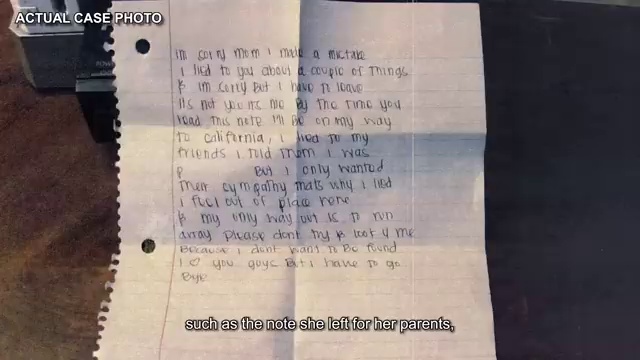 ACTUAL CASE PHOTO
im sorry mom i made a mistake
i lied to you about a couple of things
& im sorry But i have to leave
its not you its me By the time you
read this note i'll Be on my way
to california, i lied to my
friends i told them i was
p But i only wanted
their sympathy thats why i lied
i feel out of place here
& my only way out is to run
away please dont try & look 4 me
Because i dont want to Be found
i ♡ you guys But i have to go
Bye
such as the note she left for her parents,